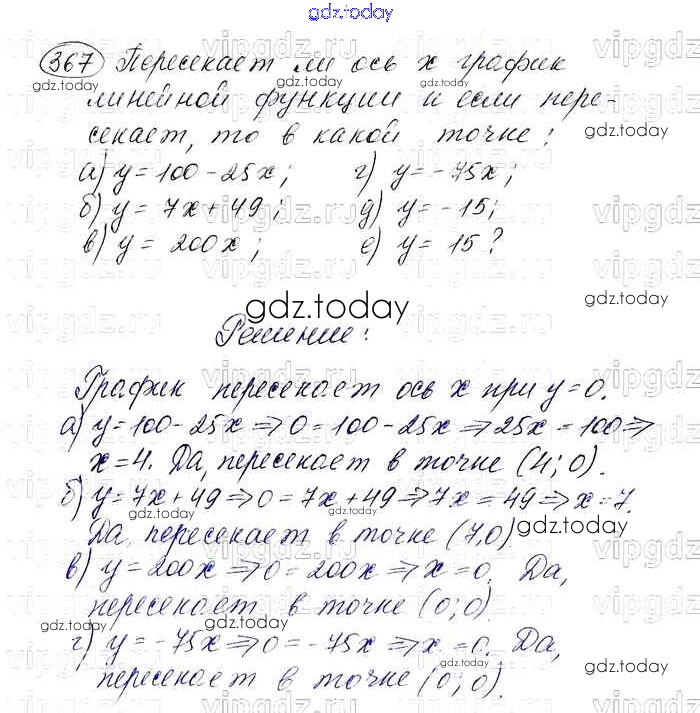 gdz.today
367 Пересекает ли ось x график
линейной функции и если пере-
секает, то в какой точке:
а) y = 100 - 25x; г) y = -75x;
б) y = 7x + 49; д) y = -15;
в) y = 200x; е) y = 15?
gdz.today
Решение:
График пересекает ось x при y = 0.
а) y = 100 - 25x ⇒ 0 = 100 - 25x ⇒ 25x = 100 ⇒
x = 4. Да, пересекает в точке (4; 0).
б) y = 7x + 49 ⇒ 0 = 7x + 49 ⇒ 7x = 49 ⇒ x = 7.
Да, пересекает в точке (7,0)
в) y = 200x ⇒ 0 = 200x ⇒ x = 0. Да,
пересекает в точке (0; 0)
г) y = -75x ⇒ 0 = -75x ⇒ x = 0. Да,
пересекает в точке (0; 0).